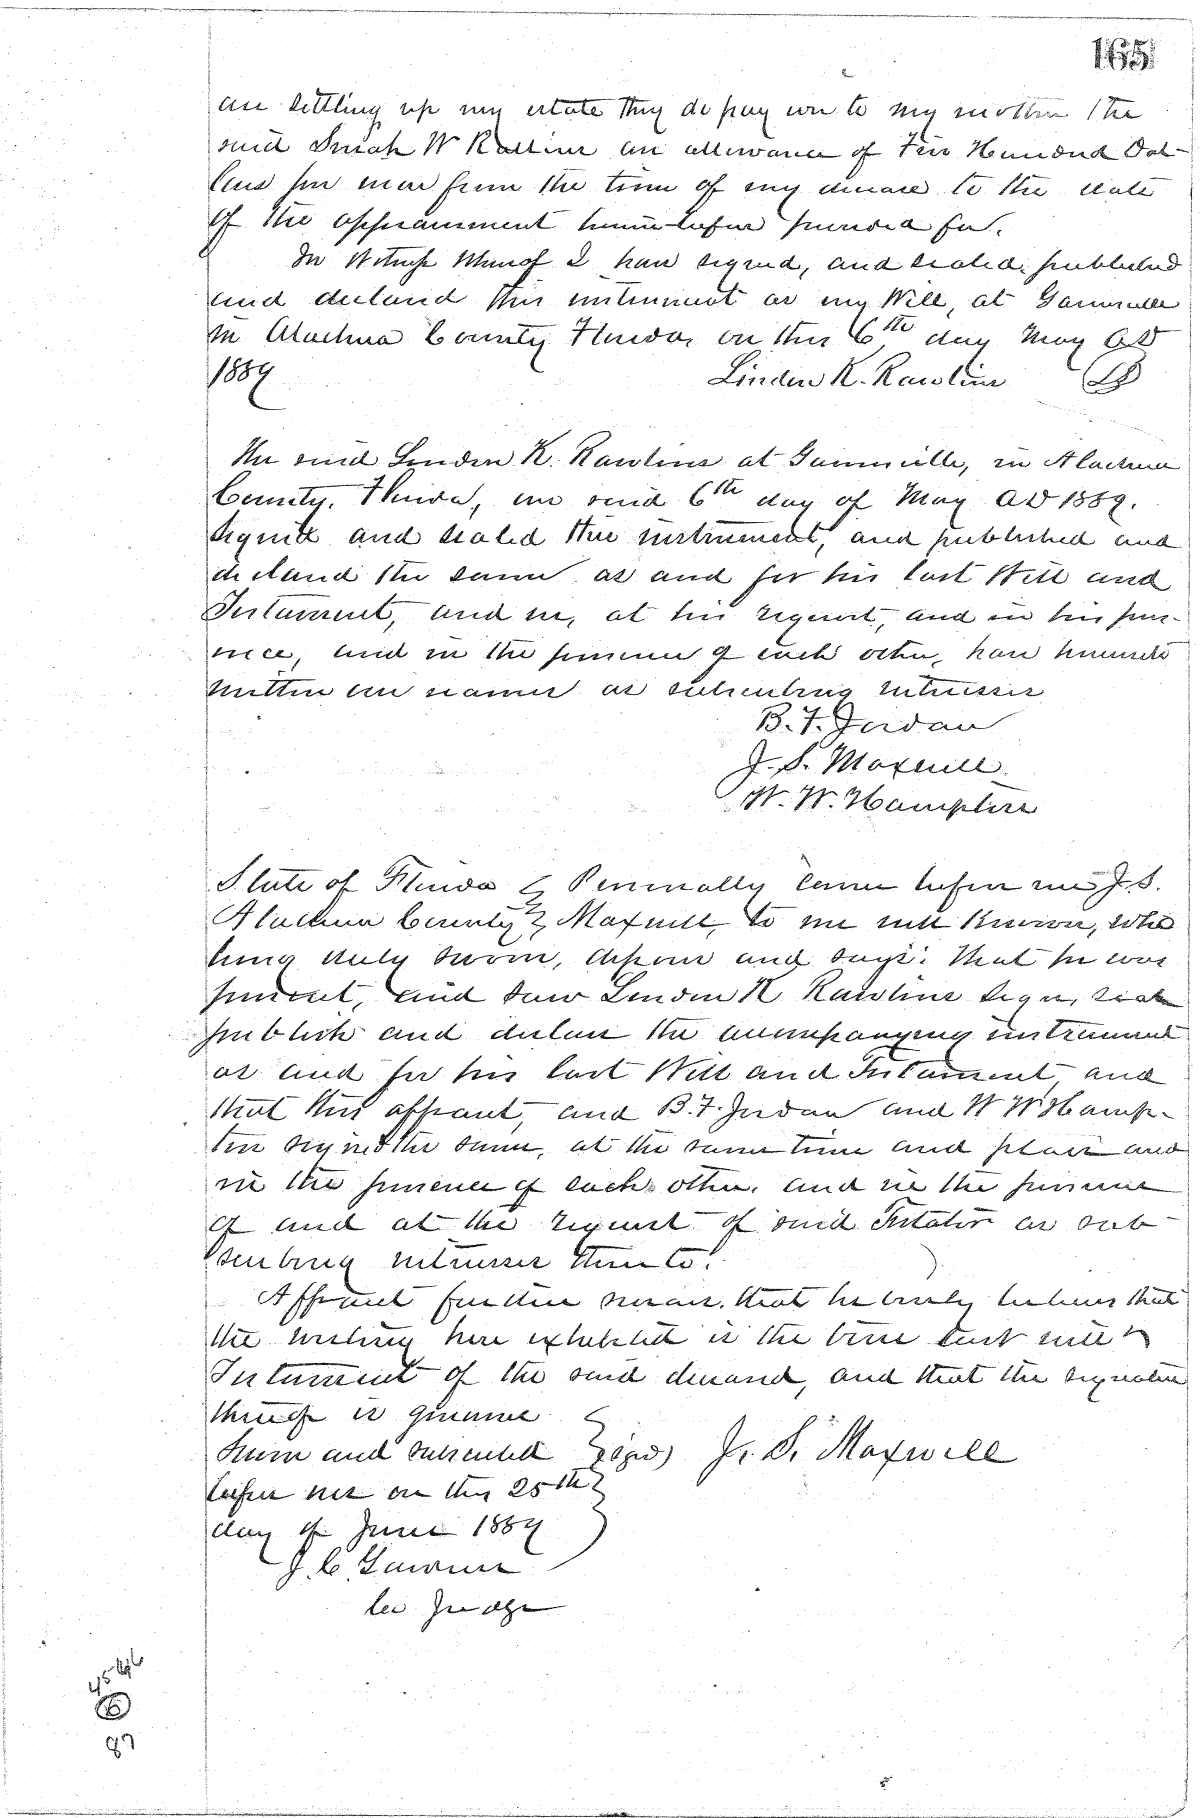 165
are settling up my estate they do pay over to my mother the
said Sarah W Rawlins an allowance of Five Hundred Dol-
lars per year from the time of my decease to the date
of the appraisement herein-before provided for.
In Witness Whereof I have signed, and sealed, published
and declared this instrument as my Will, at Gainesville
in Alachua County Florida, on this 6th day May AD
1889 Linden K. Rawlins LS
The said Linden K. Rawlins at Gainesville, in Alachua
County, Florida, on said 6th day of May AD 1889.
signed and sealed this instrument, and published and
declared the same as and for his last Will and
Testament, and we, at his request, and in his pres-
ence, and in the presence of each other, have hereunto
written our names as subscribing witnesses
B. F. Jordan
J. S. Maxwell
W. W. Hampton
State of Florida } Personally came before me J. S.
Alachua County } Maxwell, to me well known, who
being duly sworn, deposes and says: that he was
present, and saw Linden K Rawlins sign, seal
publish and declare the accompanying instrument
as and for his last Will and Testament, and
that this affiant, and B. F. Jordan and W W Hamp-
ton signed the same, at the same time and place and
in the presence of each other, and in the presence
of and at the request of said Testator as sub-
scribing witnesses thereto.
Affiant further swears, that he verily believes that
the writing here exhibited is the true last will &
Testament of the said deceased, and that the signature
thereof is genuine
Sworn and subscribed } Sgd) J. S. Maxwell
before me on this 25th
day of June 1889
J. C. Gardner
Co Judge
87